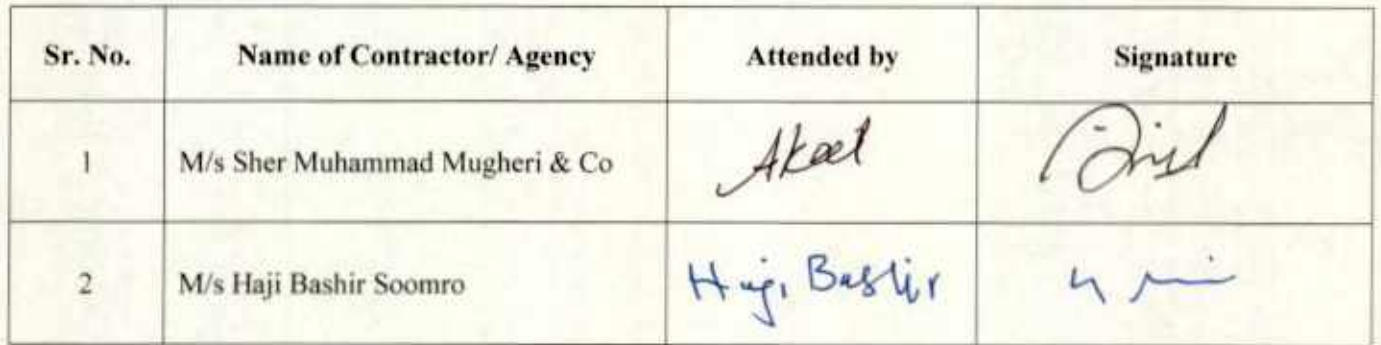 Sr. No. Name of Contractor/ Agency Attended by Signature
1 M/s Sher Muhammad Mugheri & Co Akeel
2 M/s Haji Bashir Soomro Haji Bashir